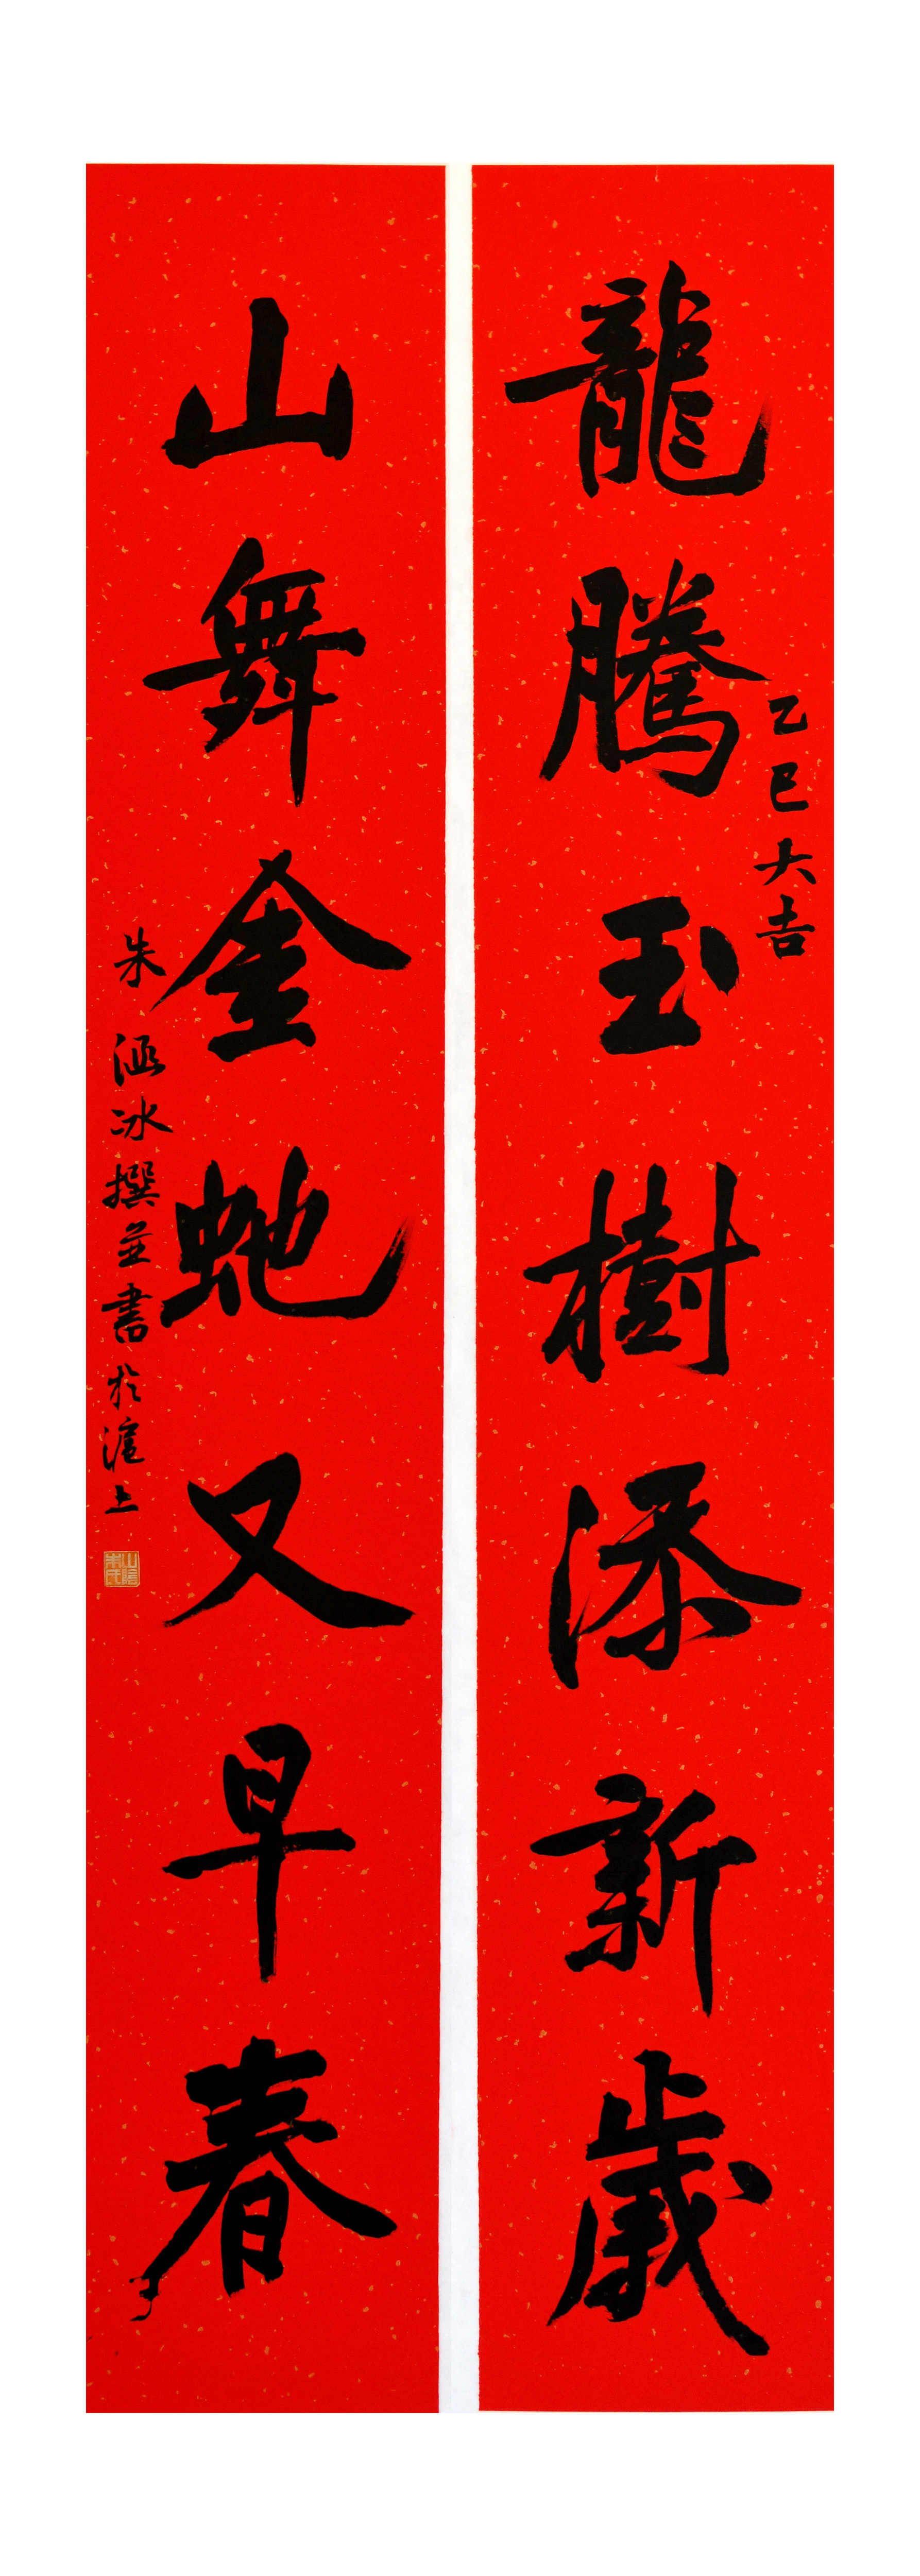 龍騰玉樹添新歲
乙巳大吉
山舞金虵又早春
朱涵冰撰並書於滬上
山陰朱氏